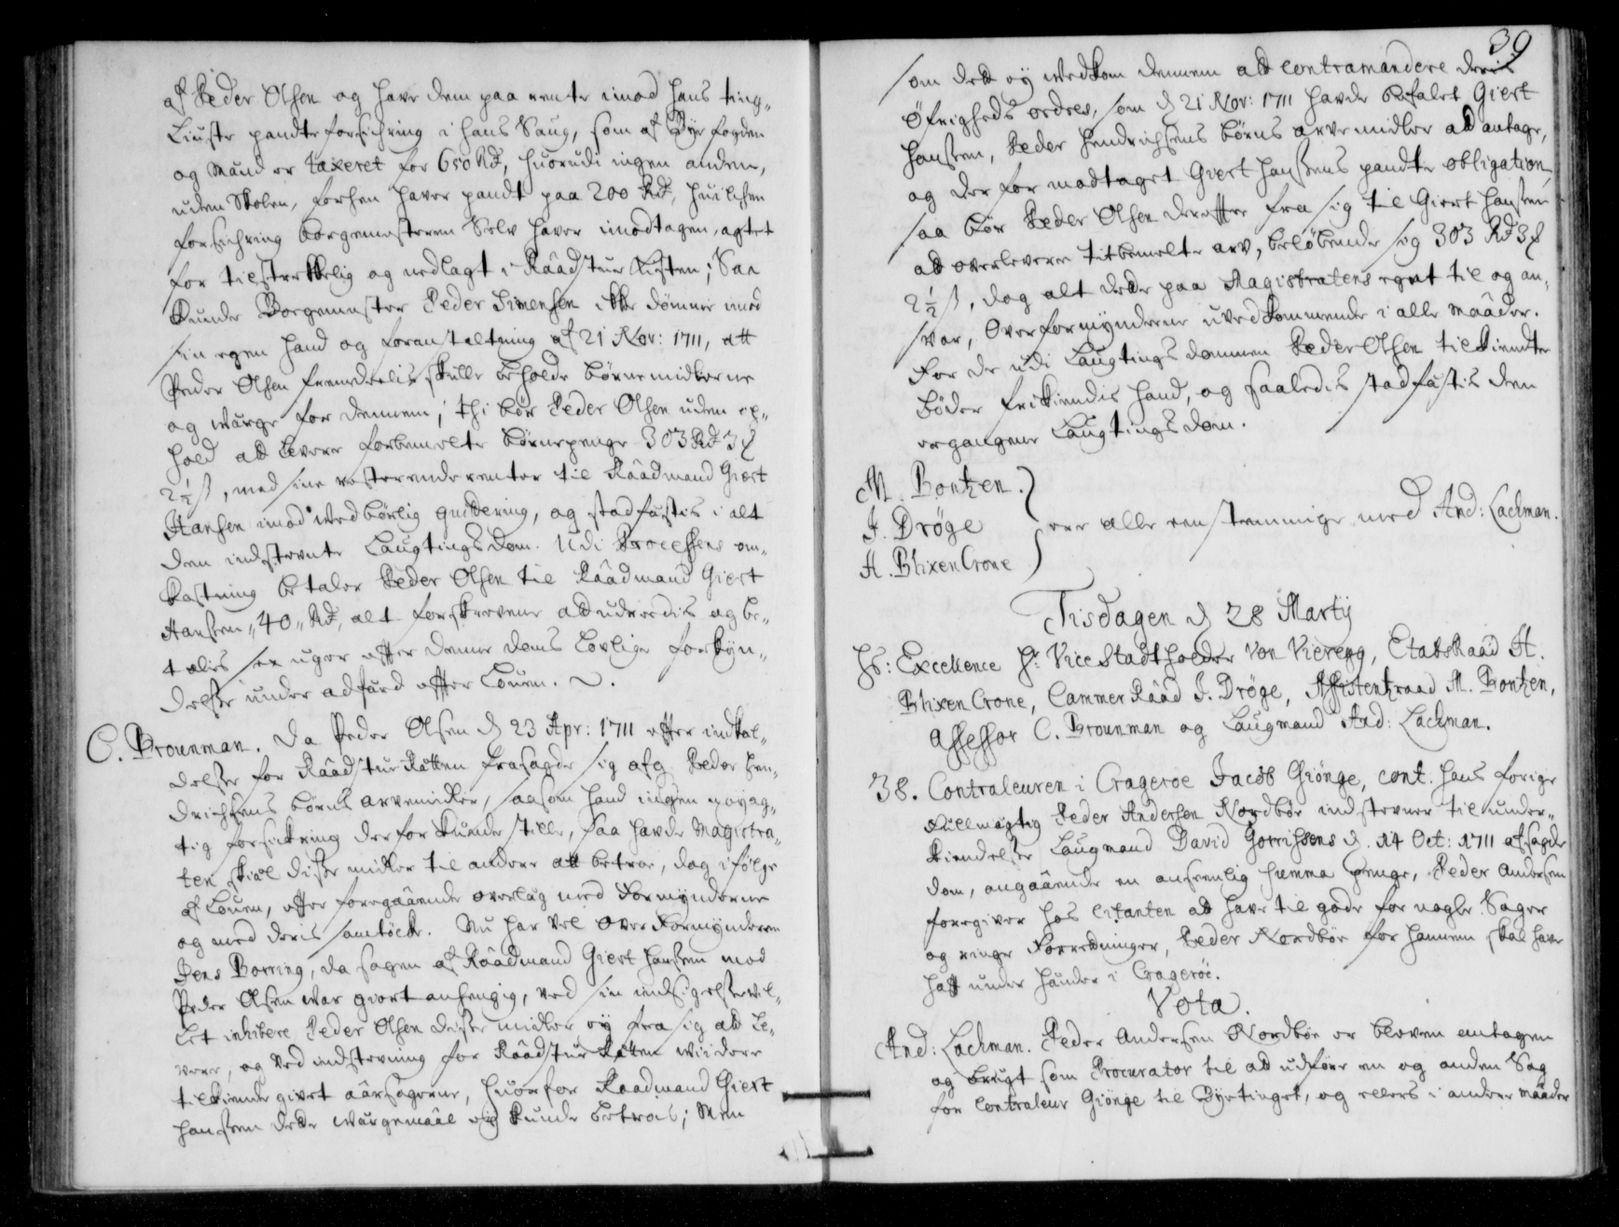 af Peder Olsen og have dem paa rente imod hans ting-
liuste pandteforsichring i hans Saug, som af Byefogden
og Mænd er taxeret for 650 Rd, huorudi ingen anden,
uden Skolen, forhen haver pandt paa 200 Rd, huilchen
forsichring borgemesteren Selv haver imodtagen, agtet
for tilstrekkelig og nedlagt i Raadstue Kisten; Saa
kunde Borgemester Peder Simensen ikke dømme imod
sin egen hand og foranstaltning af 21 Nov: 1711, att
Peder Olsen fremdeelis skulle beholde børnemidlerne
og werge for dennem; thi bør Peder Olsen uden op-
hold at levere forbemelte børnepenge 303 Rd 3 ß
2½ s, med sine resterende renter til Raadmand Giert
Hansen imod wedbørlig qvitering, og stadfæstis i alt
den indstevnte Laugtings dom. Udi Processens om-
kostning betaler Peder Olsen til Raadmand Giert
Hansen 40 Rd, alt forskrevene at udreedis og be-
talis sex uger effter denne doms lovlige forkyn-
delse under adfærd effter Louen.
C. Brounman. Da Peder Olsen d 23 Apr: 1711 effter indkal-
delse for Raadstue Retten frasagde sig afg. Peder Hen-
drichsens børns arvemidler, saasom hand ingen noyag-
tig forsickring derfor kunde stille, saa hafde Magistra-
ten skiæl disse midler til andere att betroe, dog i følge
af Louen, effter foregaaende overlæg med Formynderne
og med deris samtöcke. Nu har vel OverFormynderen
Jens Borring, da sagen af Raadmand Giert Hansen mod
Peder Olsen war giort anhengig, ved sin indsigelse wil-
let inhibere Peder Olsen disse midler ey fra sig at le-
vere, og ved indstevning for Raadstue Retten wiidere
tilkiende givet aarsagerne, huorfor Raadmand Giert
Hansen dette wergemaal ey kunde betrois; Men
39
som dett ey wedkom dennem att contramandere deris
Øfrigheds ordres, som d 21 Nov: 1711 hafde befalet Giert
Hansen, Peder Hendrichsens børns arvemidler att antage,
og derfor modtaget Giert Hansens pandte obligation,
saa bør Peder Olsen dereffter fra sig til Giert Hansen
att overlevere titbemelte arv, beløbende sig 303 Rd 3 ß
2½ s, dog alt dette paa Magistratens egut til og an-
svar, Overformynderne uvedkommende i alle maader.
For de udi Laugtings dommen Peder Olsen tilkiendte
bøder frikiendis hand, og saaledis stadfæstis den
ergangene Laugtings dom.
M. Bontzen.
J. Dröge
A. BlixenCrone
ere alle eenstemmige med And: Lachman.
Tisdagen d 28 Martij
Hs: Excellence Hr: ViceStadtholder von Viereng, EtatsRaad A.
BlixenCrone, CammerRaad J. Dröge, Assistentzraad M. Bontzen,
Assessor C. Brounman og Laugmand And: Lachman.
38. Contraleuren i Crageroe Jacob Giönge, cont. hans forige
Fuldmægtig Peder Andersen Nordböe indstevner til under-
kiendelse Laugmand David Gorrissens d. 14 Oct: 1711 afsagde
dom, angaaende en anseenlig summa penge, Peder Andersen
foregiver hos Citanten att have til gode for nogle Sager
og ringe Forretninger, Peder Nordböe for hannem skal have
hafft under hænder i Crageröe.
Vota.
And: Lachman. Peder Andersen Nordböe er bleven antagen
og brugt som Procurator til att udføre en og anden Sag
for Contraleur Giönge til Byetinget, og ellers i andere maader